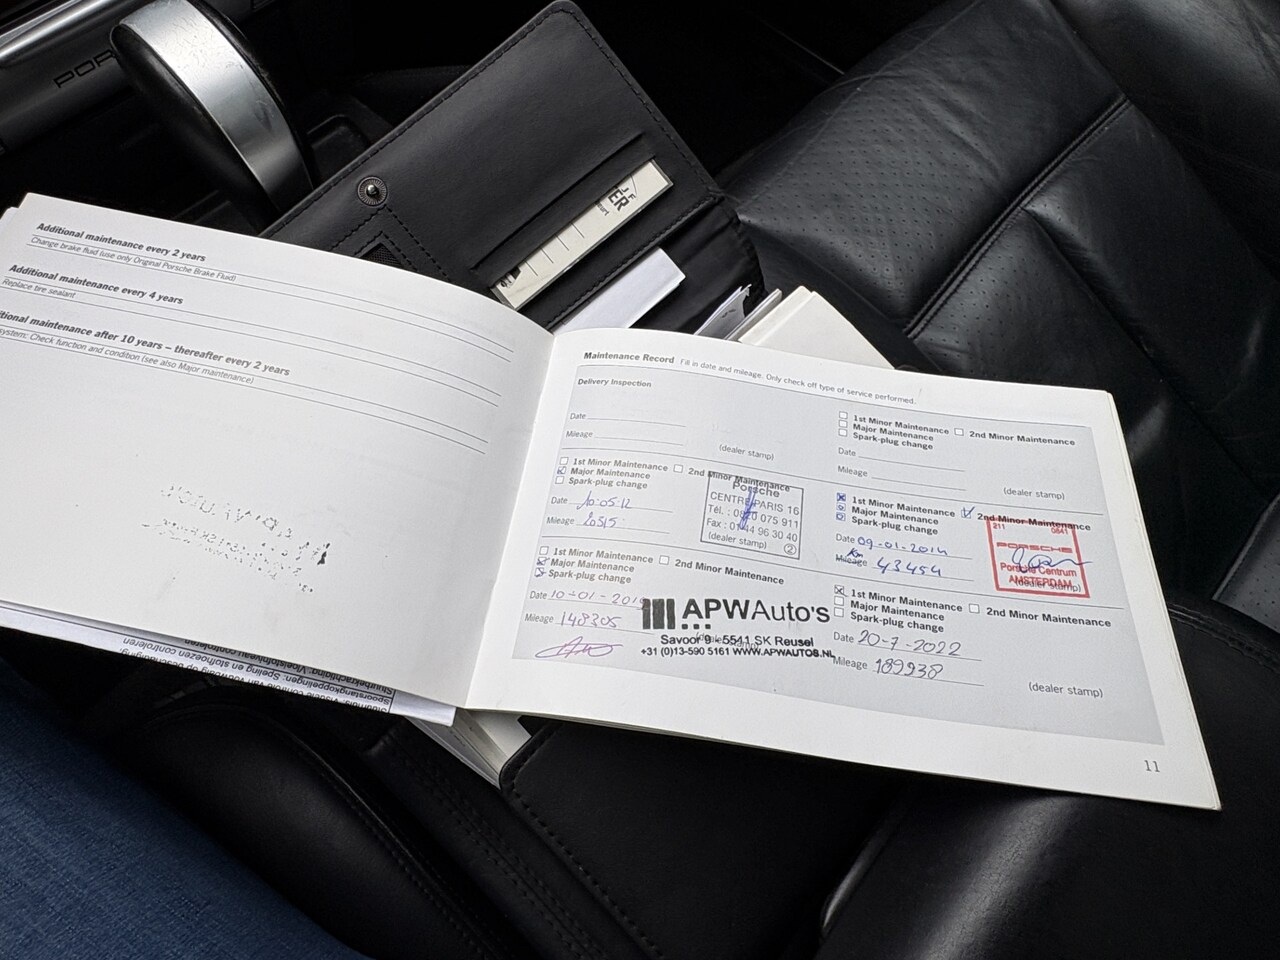 POR
Additional maintenance every 2 years
Change brake fluid (use only Original Porsche Brake Fluid)
Additional maintenance every 4 years
Replace tire sealant
tional maintenance after 10 years – thereafter every 2 years
system: Check function and condition (see also Major maintenance)
Maintenance Record Fill in date and mileage. Only check off type of service performed.
Delivery Inspection
Date
Mileage
(dealer stamp)
1st Minor Maintenance 2nd Minor Maintenance
Major Maintenance
Spark-plug change
Date
Mileage
(dealer stamp)
1st Minor Maintenance 2nd Minor Maintenance
Major Maintenance
Spark-plug change
Date 10.05.12
Mileage 20515
Porsche
CENTRE PARIS 16
Tél. : 0820 075 911
Fax : 01 44 96 30 40
(dealer stamp)
2
1st Minor Maintenance 2nd Minor Maintenance
Major Maintenance
Spark-plug change
Date 09-01-2014
Mileage 43454
211 0641
PORSCHE
Porsche Centrum
AMSTERDAM
(dealer stamp)
1st Minor Maintenance 2nd Minor Maintenance
Major Maintenance
Spark-plug change
Date 10-01-2019
Mileage 148305
APWAuto's
Savoor 9 - 5541 SK Reusel
+31 (0)13-590 5161 WWW.APWAUTOS.NL
1st Minor Maintenance 2nd Minor Maintenance
Major Maintenance
Spark-plug change
Date 20-7-2022
Mileage 189938
(dealer stamp)
11